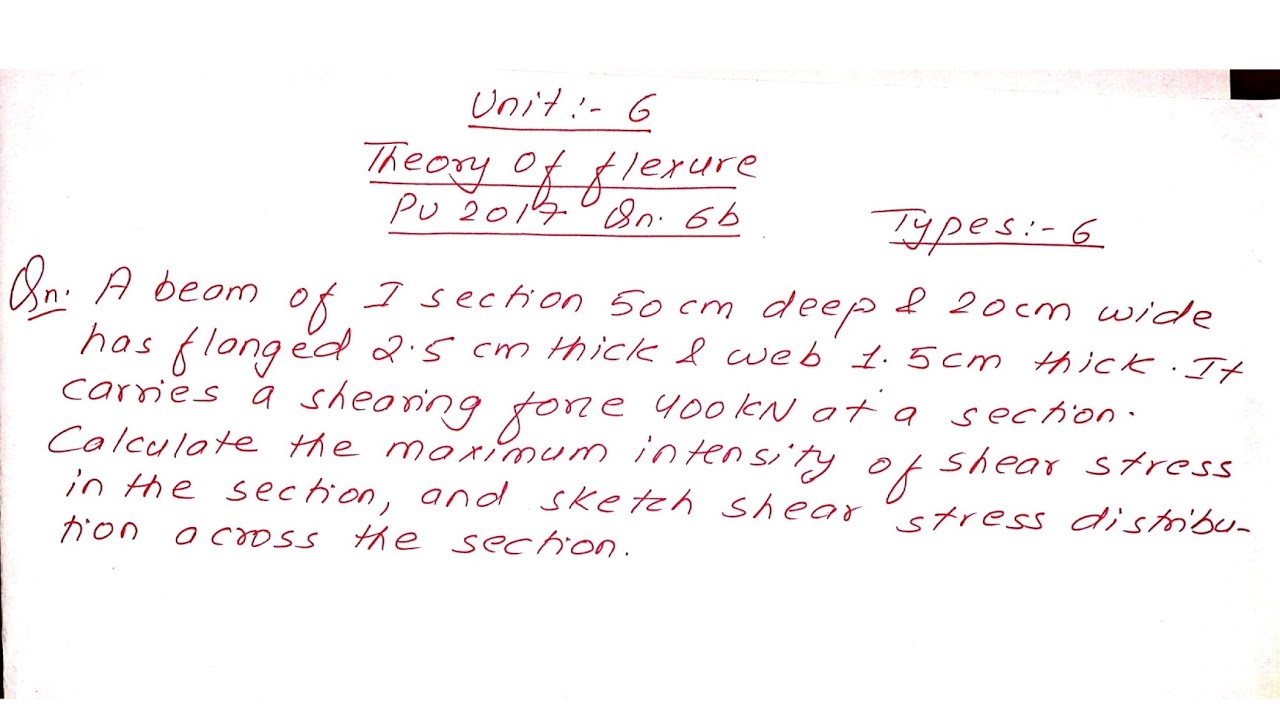 Unit:- 6
Theory of flexure
PU 2017 Qn. 6b
Types:- 6
Qn. A beam of I section 50 cm deep & 20cm wide
has flanged 2.5 cm thick & web 1.5cm thick. It
carries a shearing force 400kN at a section.
Calculate the maximum intensity of shear stress
in the section, and sketch shear stress distribu-
tion across the section.